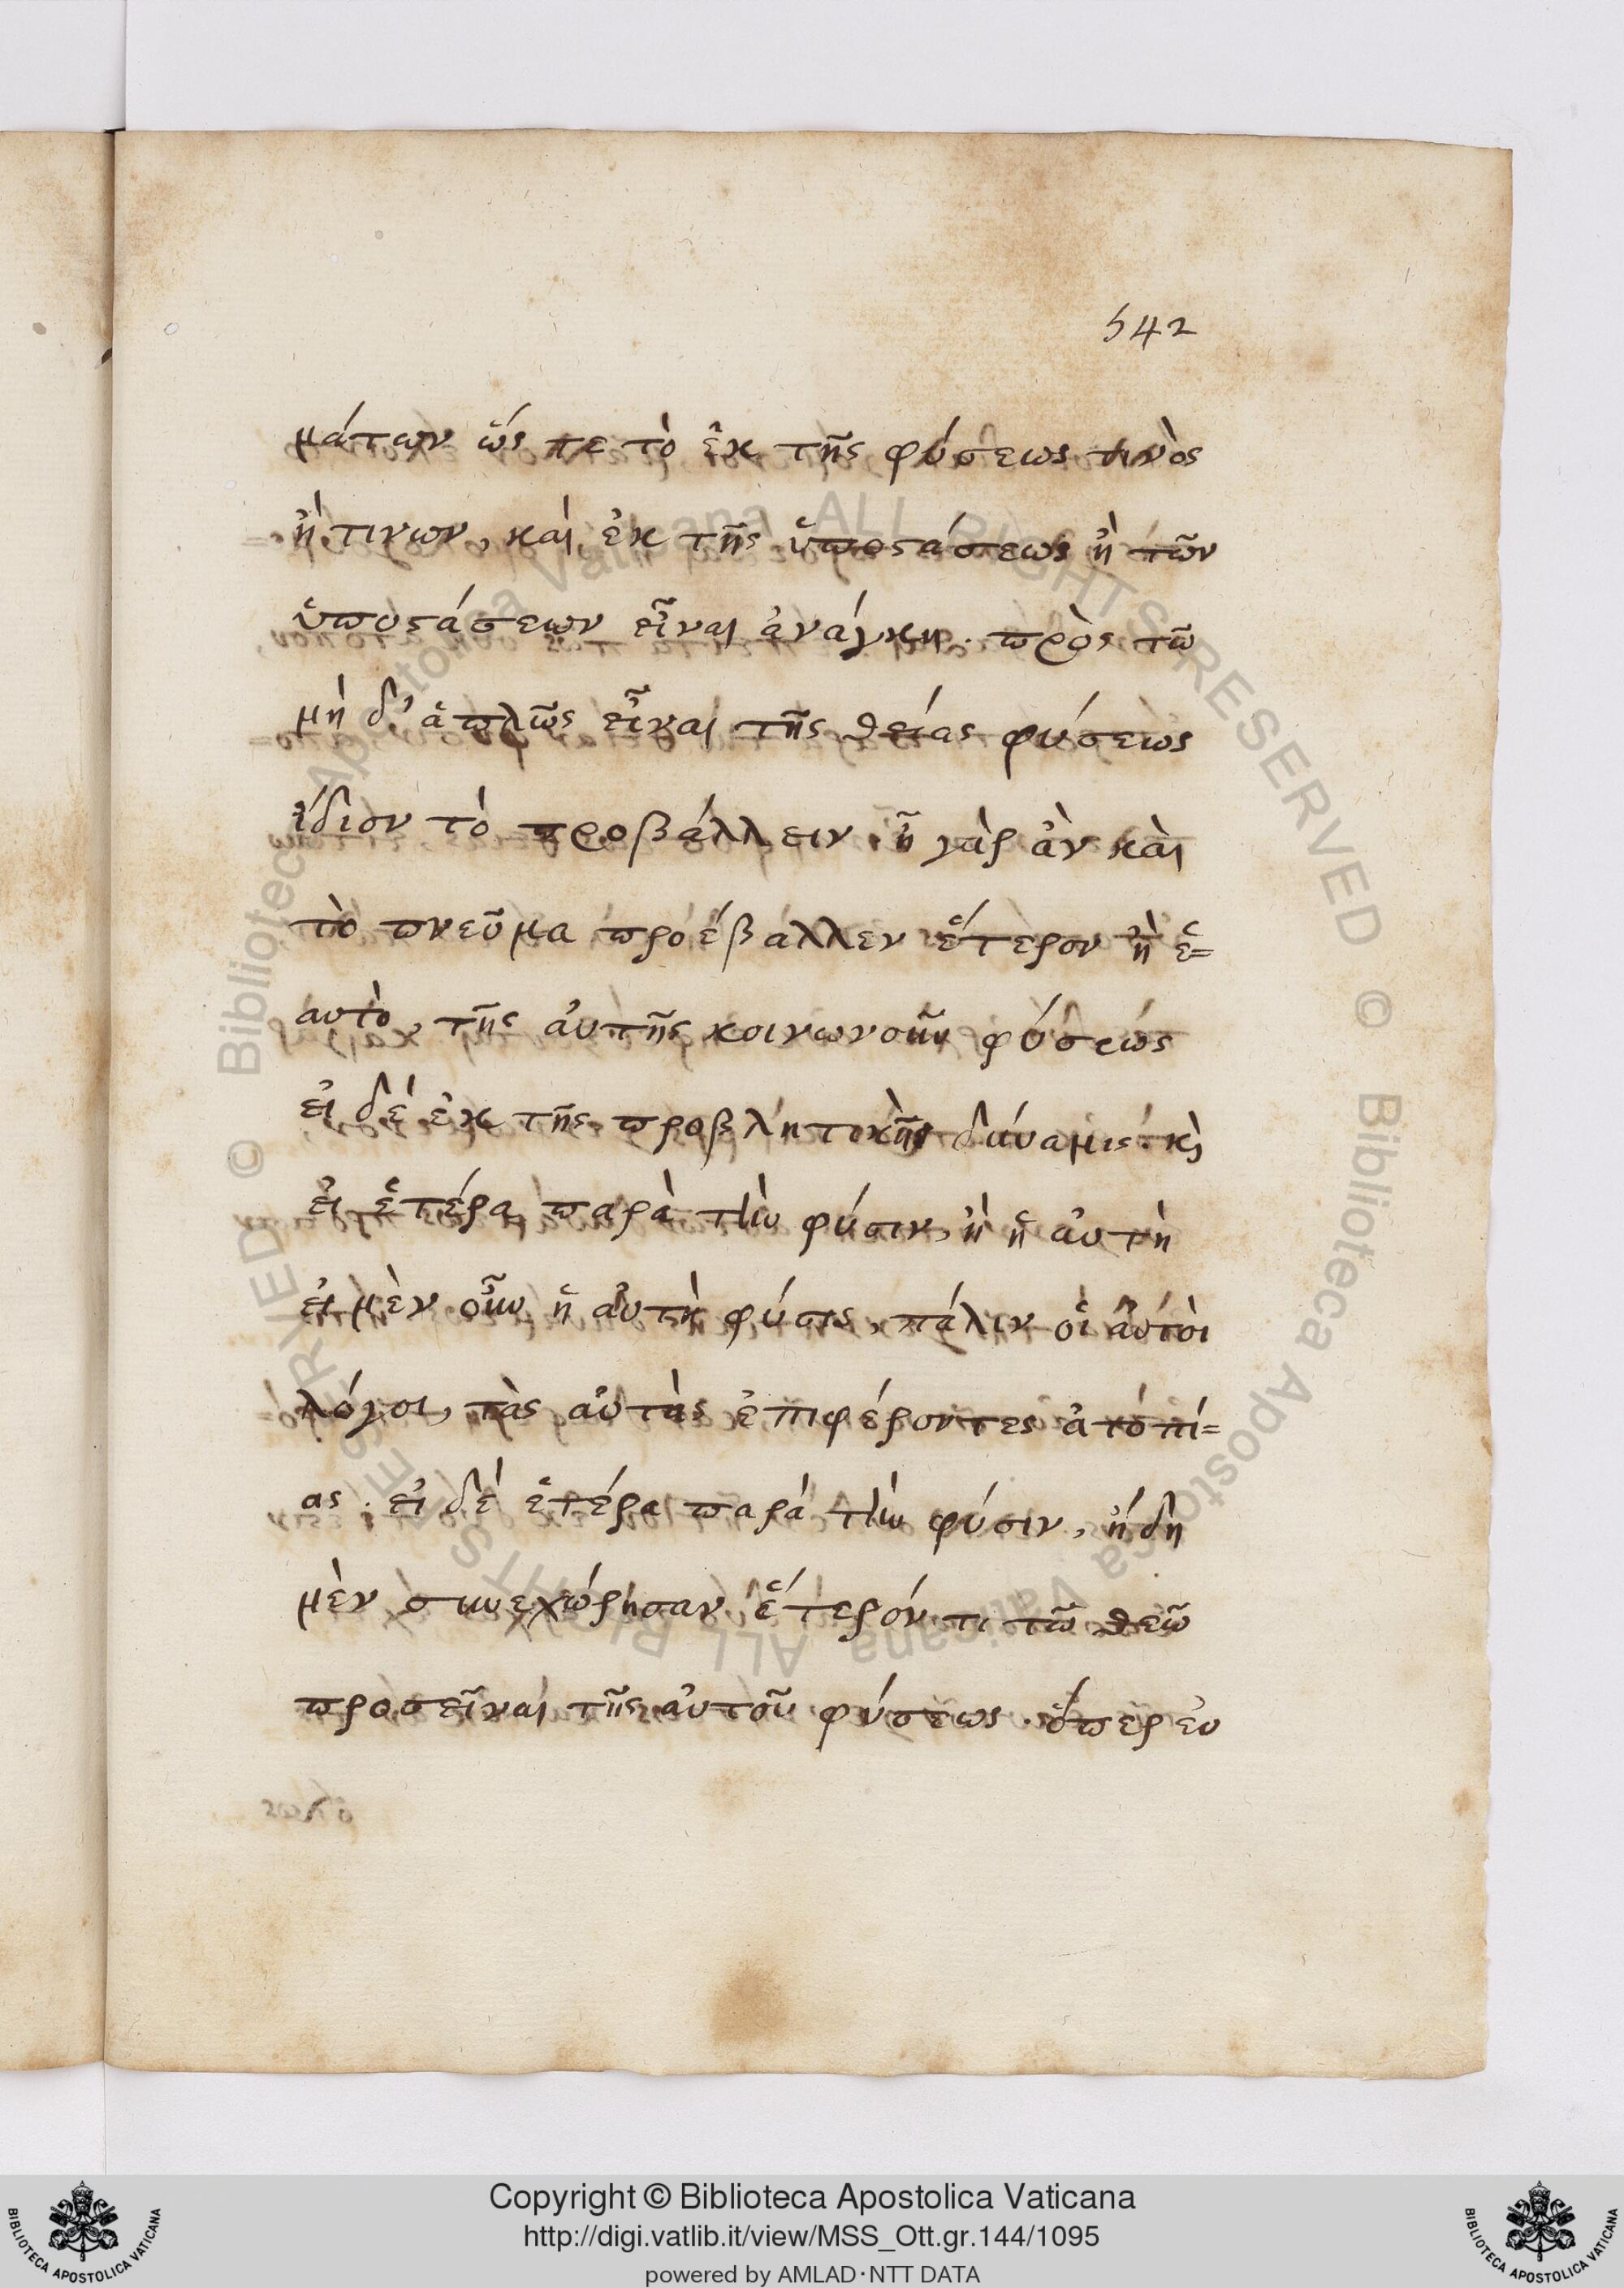 542
μάτων ὥς πε τὸ ἐκ τῆς φύσεως τινὸς
ἢ τινων, καὶ ἐκ τῆς ὑποστάσεως ἢ τῶν
ὑποστάσεων εἶναι ἀνάγκη. πρὸς τῶ
μὴ δ' ἁπλῶς εἶναι τῆς θείας φύσεως
ἴδιον τὸ προβάλλειν. ἦ γὰρ ἂν καὶ
τὸ πνεῦμα προέβαλλεν ἕτερον ἢ ἑ=
αυτὸ, τῆς αὐτῆς κοινωνοῦν φύσεως
εἰ δὲ ἐκ τῆς προβλητικῆς δυνάμις. κὶ
εἰ ἑτέρα παρὰ τὴν φύσιν, ἢ ἡ αὐτὴ
εἰ μὲν οὖν ἡ αὐτὴ φύσις, πάλιν οἱ αὐτοὶ
λόγοι, τὰς αὐτὰς ἐπιφέροντες ἀτοπί=
ας. εἰ δὲ ἑτέρα παρά τὴν φύσιν, ἤδη
μὲν συνεχώρησαν ἕτερόν τι τῶ θεῶ
προσεῖναι τῆς αὐτοῦ φύσεως. ὅπερ ἐυ
Copyright © Biblioteca Apostolica Vaticana
http://digi.vatlib.it/view/MSS_Ott.gr.144/1095
powered by AMLAD·NTT DATA